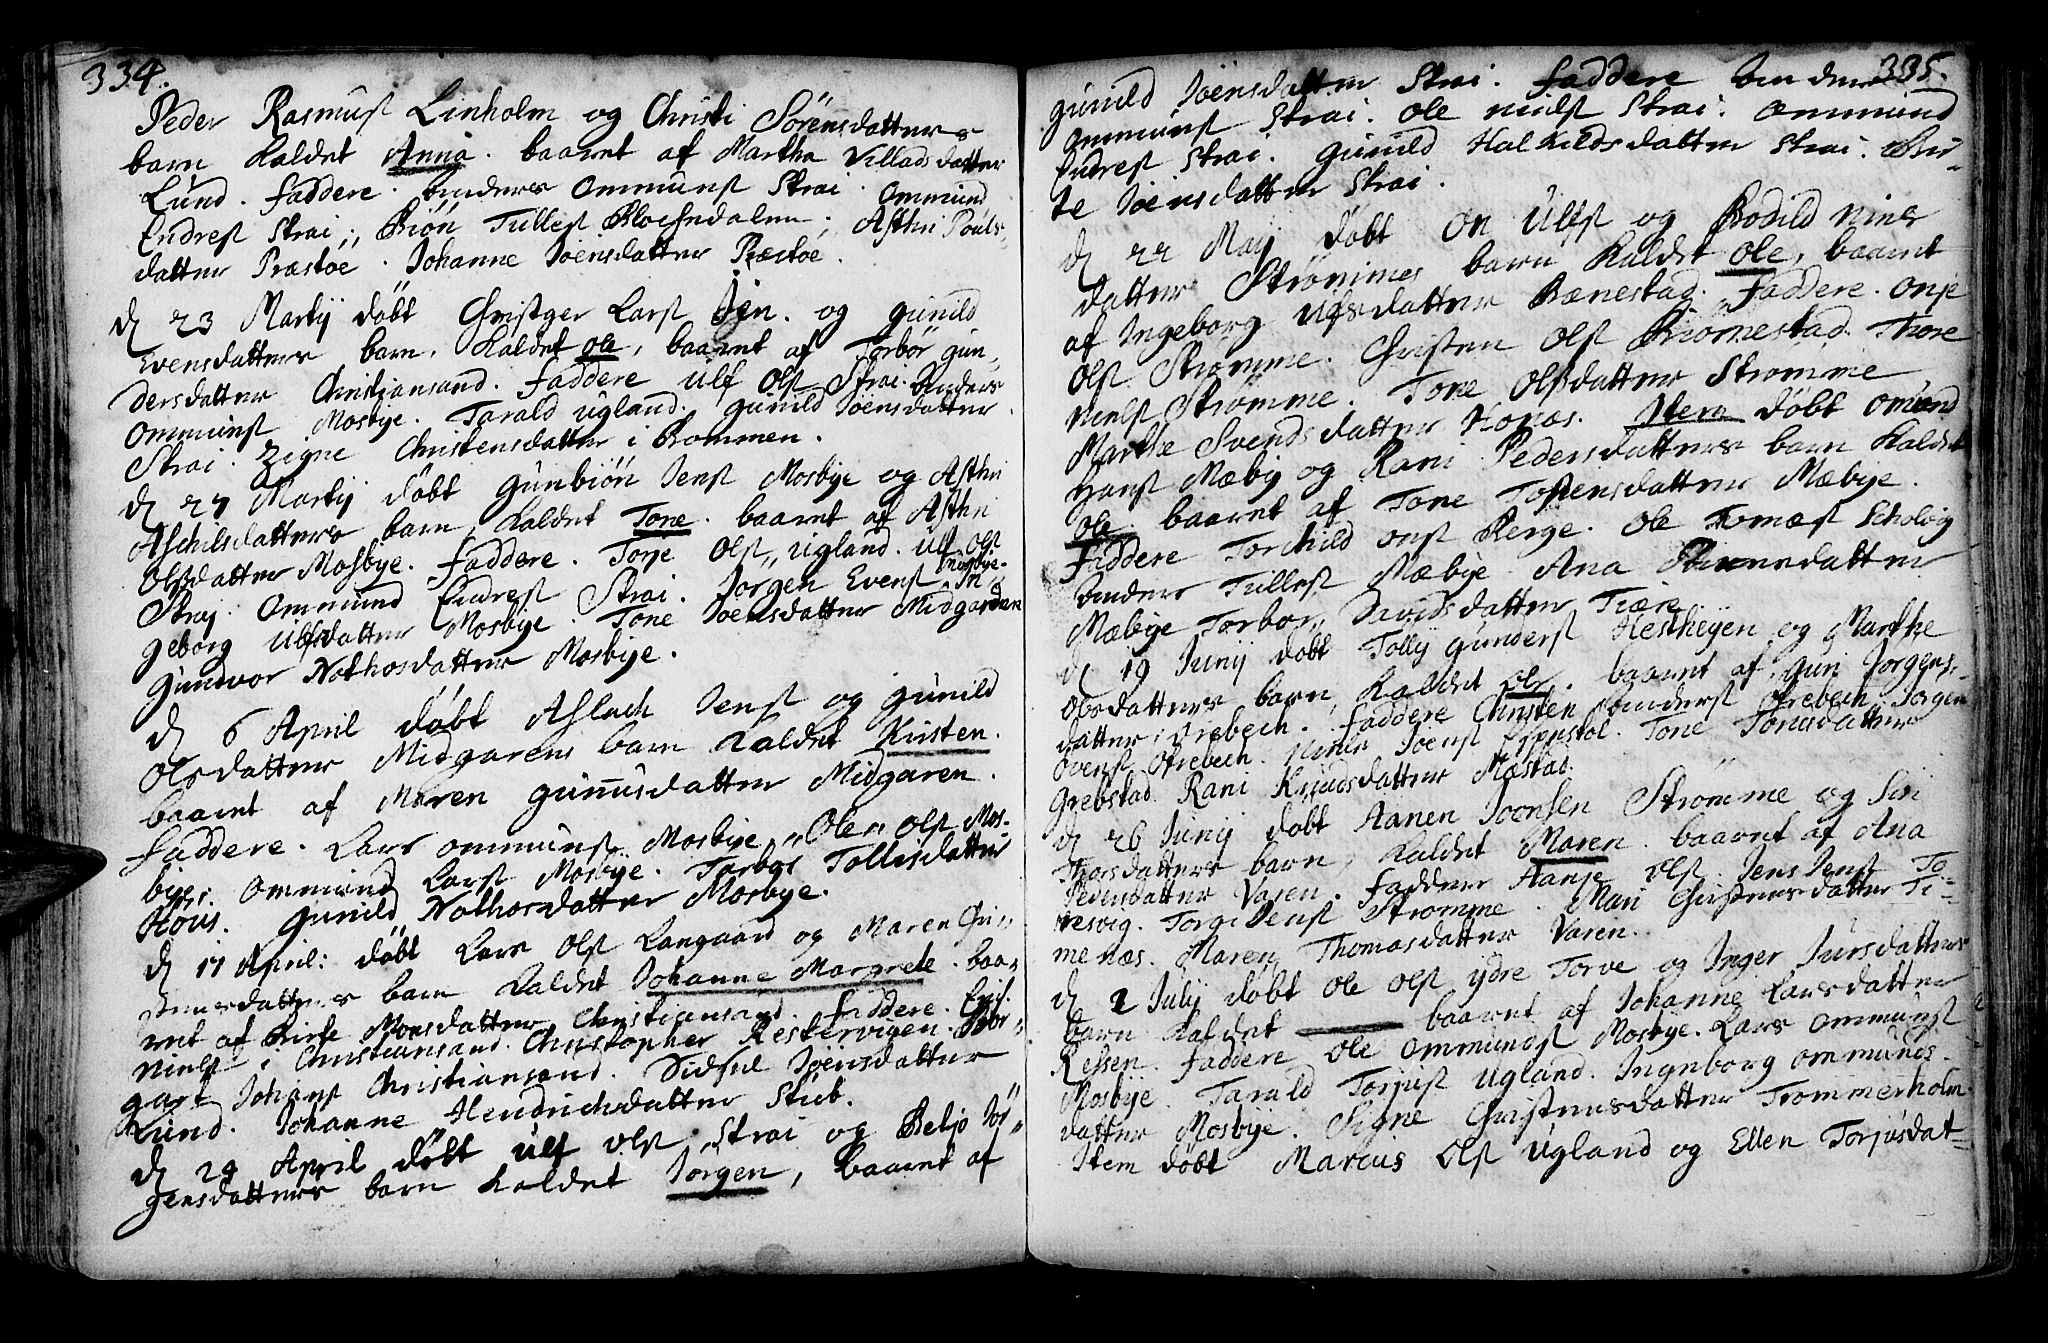 334.
Peder Rasmusß Linholm og Christi Sörensdatters
barn kaldet Anna. baaret af Martha Villads datter
Lund. faddere. Anders Ommunß Strai. Ommund
Endresß Strai; Biön Tulleß Blochedalen; Asthri Pouls-
datter Præstøe. Johanne Joensdatter Præstøe.
d 23 Martij döbt Christger Larß Jen. og gunild
Evensdatters barn. Kaldet Ole, baaret af Torbör gun-
dersdatter Christiansand. faddere Ulf Olß Strai. Anders
Ommunß Mosbye. Tarald Ugland. gunild Joensdatter
Strai. Zigne Christensdatter i Kommen.
d 27 Martij döbt Gunbiön Jenß Mosbye og Asthri
Aschilsdatters barn, kaldet Tone. baaret af Asthri
Olsdatter Mosbye. faddere. Torje Olß Ugland. Ulf Olß
Straj. Ommund Endresß Strai. Jörgen Evenß Mosbye. In-
geborg Ulfsdatter Mosbye. Tone Joensdatter Midgarden
Gundvor Nothosdatter Mosbye.
d 6 April döbt Aslach Jenß og gunild
Olsdatter Midgarens barn kaldet Kirsten.
baaret af Maren gunnusdatter Midgaren.
faddere. Lars Ommunß Mosbye, Ole Olß Mos-
bye. Ommund Larß Mosbye. Torbor Tollisdatter
Höus. Gunild Nothosdatter Mosbye.
d 17 April: döbt Lars Olß Langaard og Maren Chri-
stensdatters barn kaldet Johanne Margrete. baa-
ret af Birte Monsdatter Christiansand. faddere. Eric
Nielß i Christiansand. Christopher Kestervigen. Bor-
gart Johanß Christiansand. Sidsel Joensdatter
Lund. Johanne Hendrichsdatter Stub.
d 24 April döbt Ulf Olß Strai og Beljo Jör-
gensdatters barn kaldet Jörgen, baaret af
335.
gunild Joensdatter Strai. faddere Anders
Ommunß Strai. Ole Nielß Strai. Ommund
Endresß Strai. Gunild Halkildsdatter Strai. Bir-
te Joensdatter Strai.
d 22 Maij döbt On Ulfß og Bodild Niels
datter Strømmes barn kaldet Ole, baaret
af Ingeborg Ulfsdatter Bænestad. Faddere. Onje
Olß Strømme. Christen Olß Kiömestad. Thore
Nielß Strømme. Tone Olsdatter Strømme
Marthe Svends datter Honæs. Item döbt Omund
Hanß Mæby og Rani Pedersdatters barn kaldet
Ole baaret af Tone Tostensdatter Mæbye.
Faddere Torchild Onß Berge. Ole Tomæß Scholvig
Anders Tulleß Mæbye. Ana Steenersdatter
Mæbye Torbor Davidsdatter Tiære
d 19 Junij döbt Tollij Gunderß Hestheyen og Marthe
Olsdatters barn, kaldet Ole. baaret af Guri Jörgens-
datter Drebech. Faddere Christen Anderß Ofrebech. Jörgen
Ovenß Ofrebech. Niels Joenß Eppestöl. Tone Jonsdatter
Grebstad. Rani Knudsdatter Mæstad.
d 26 Junij döbt Aanen Joonsen Strømme og Siri
Thorsdatters barn, kaldet Maren. baaret af Ana
Pedersdatter Varen. faddere Aanje Olß. Jens Jenß To-
resvig. Torgi Jenß Strømme. Mari Christensdatter Ti-
menæs. Maren Thomasdatter Varen.
d 2 Julij döbt Ole Olß ydre Torve og Inger Jursdatters
barn kaldet baaret af Johanne Larsdatter
Rensen. faddere Ole Ommundß Mosbye. Lars Ommunß
Mosbye. Tarald Torjuß Ugland. Ingeborg Ommunds-
datter Mosbye. Signe Christensdatter Trommerholm.
Item döbt Marcus Olß Ugland og Ellen Torjusdat-